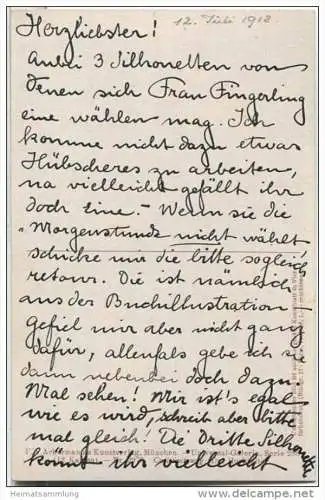 12. Juli 1912
Herzliebster!
Anbei 3 Silhouetten von
denen sich Frau Fingerling
eine wählen mag. Ich
komme nicht dazu etwas
Hübscheres zu arbeiten,
na vielleicht gefällt ihr
doch eine. – Wenn sie die
„Morgenstunde nicht wählt,
schicke mir die bitte sogleich
retour. Die ist nämlich
aus der Buchillustration
gefiel mir aber nicht ganz
dafür, allenfalls gebe ich sie
dann nebenbei doch dazu.
Mal sehen! Mir ist's egal
wie es wird, schreib aber bitte
mal gleich! Die Dritte Silhouette
könnt ihr vielleicht
Ackermanns Kunstverlag, München
Universal-Galerie, Serie
Heimatsammlung
www.heimatsammlung.de